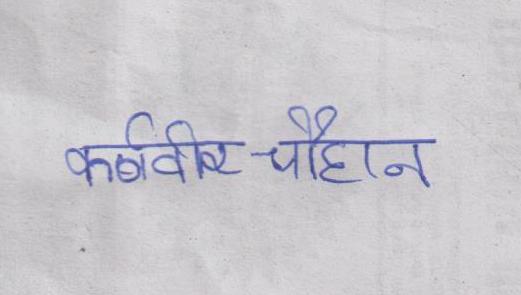 कर्मवीर चौहान